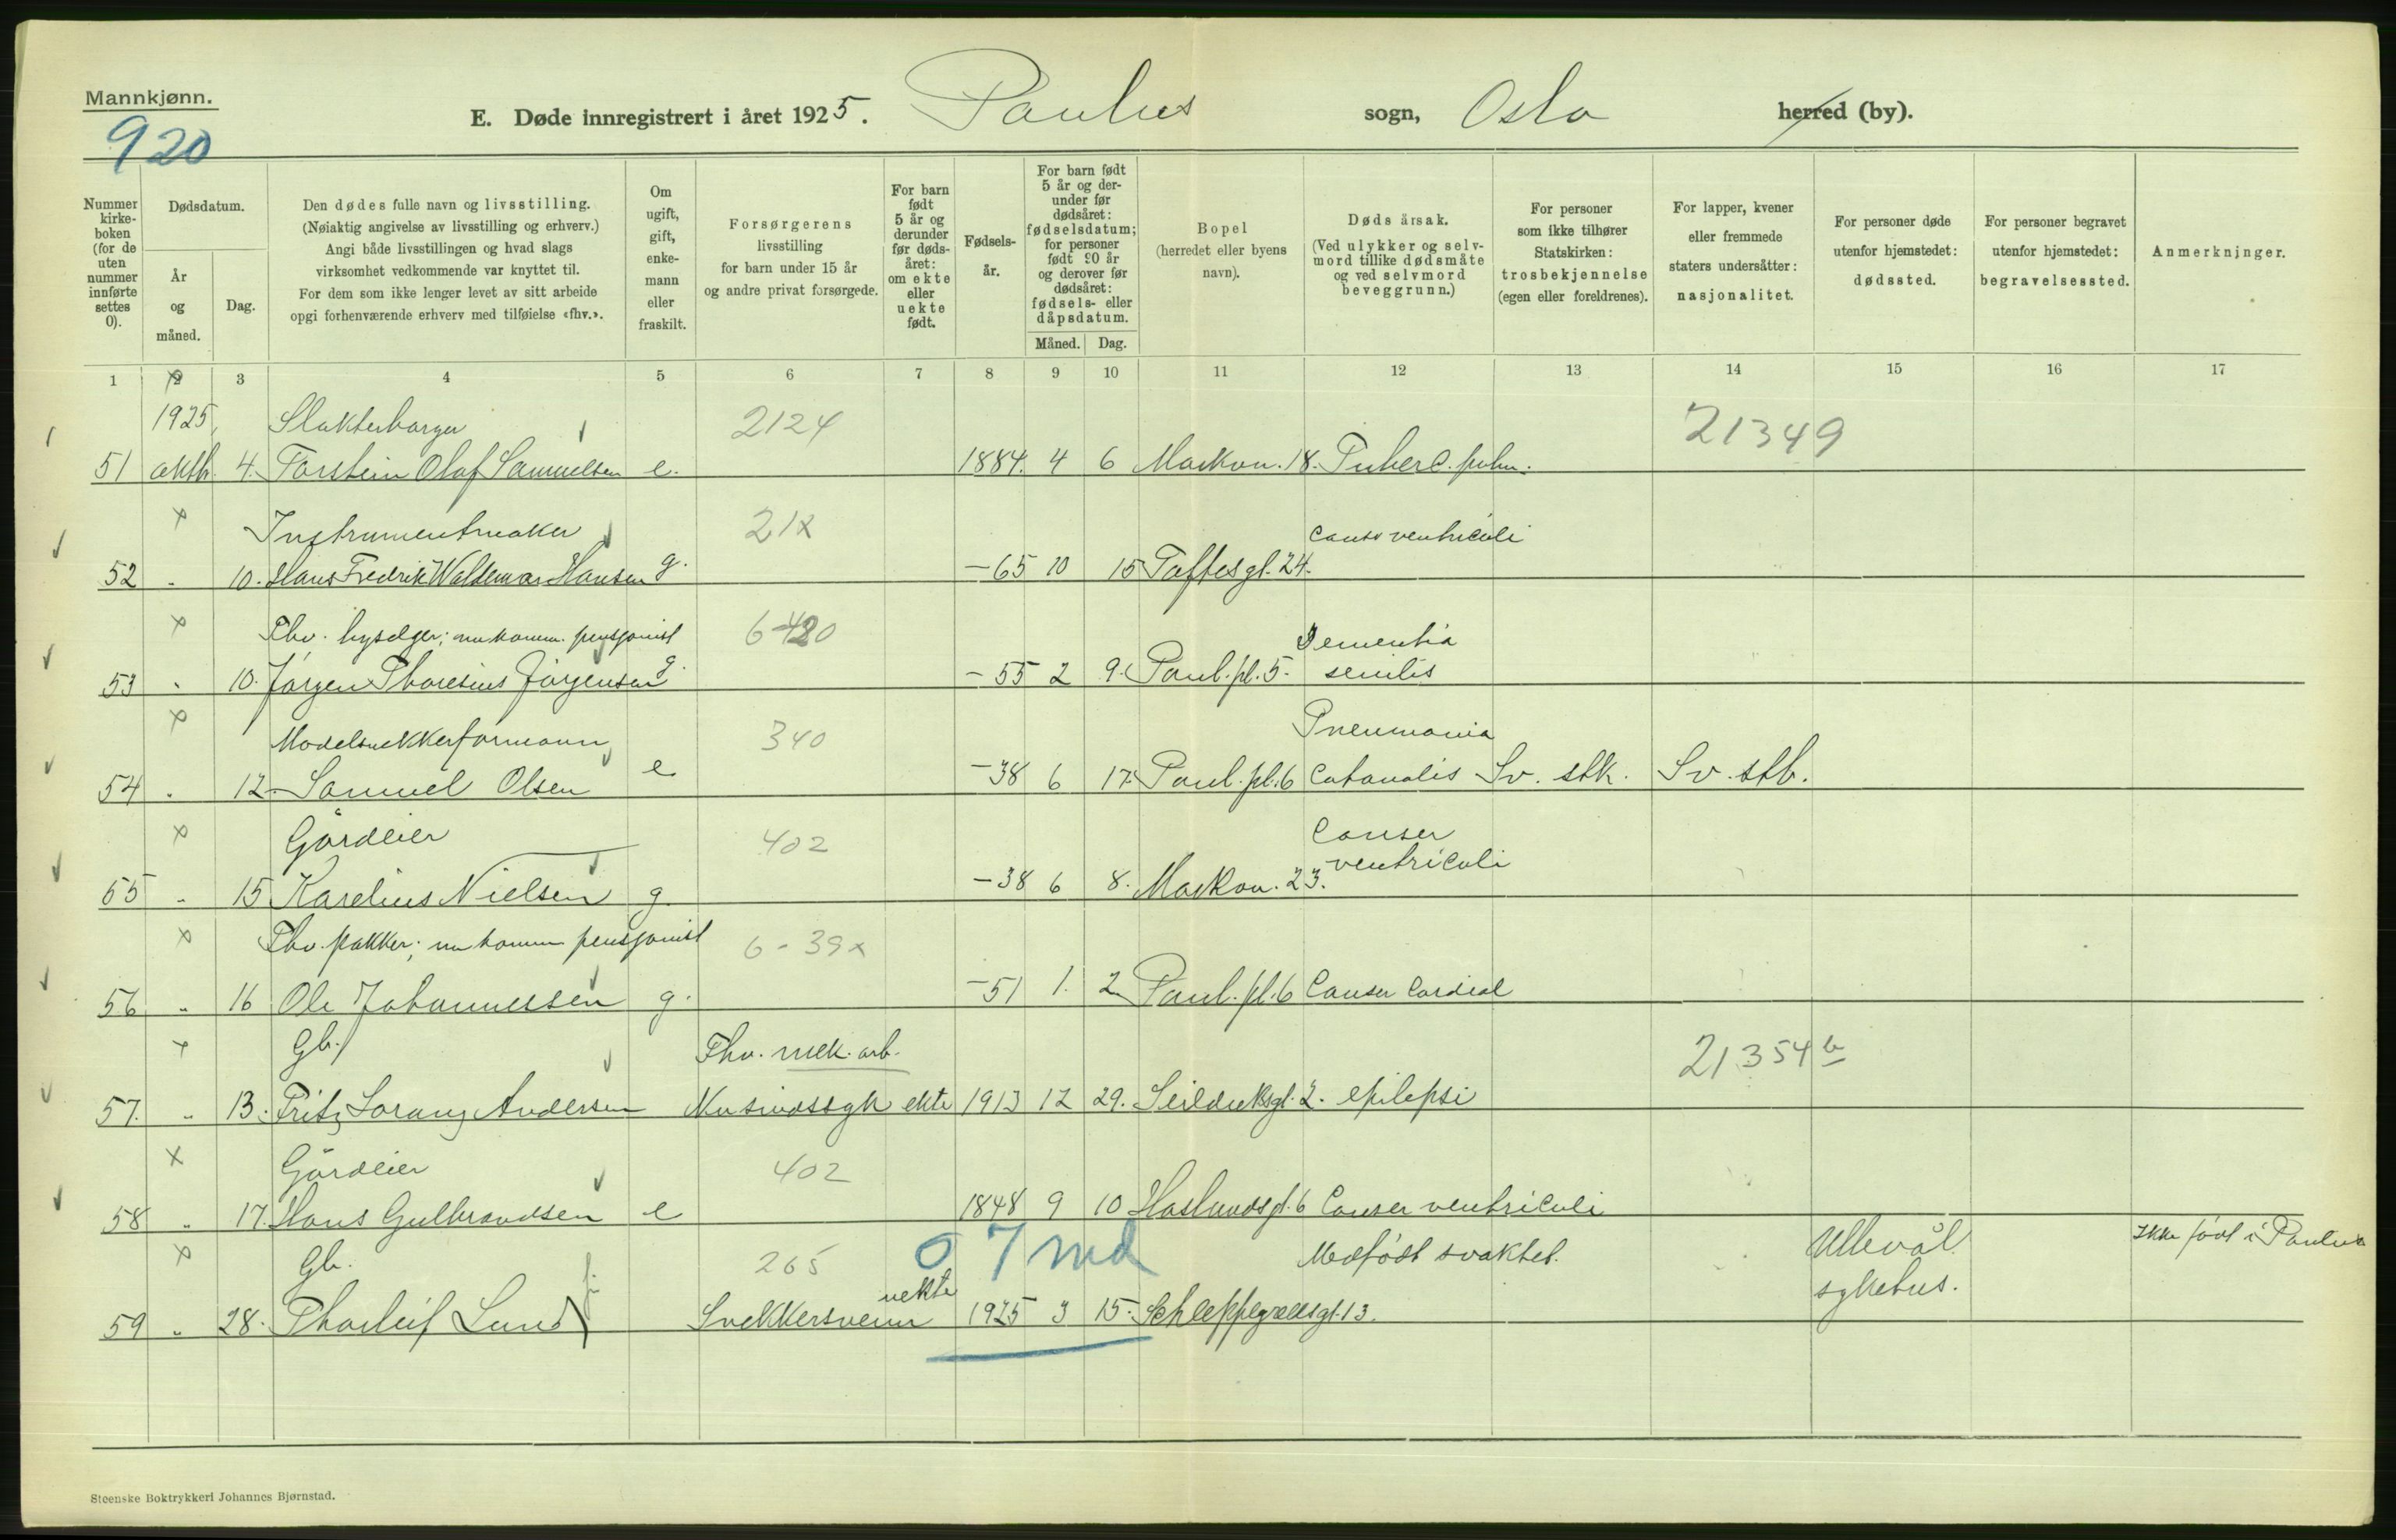 Mannkjønn.
920
E. Døde innregistrert i året 1925. Paulus sogn, Oslo herred (by).
Nummer kirke-boken (for de uten nummer innførte settes 0).
Dødsdatum.
År og måned.
Dag.
Den dødes fulle navn og livsstilling.
(Nøiaktig angivelse av livsstilling og erhverv.)
Angi både livsstillingen og hvad slags
virksomhet vedkommende var knyttet til.
For dem som ikke lenger levet av sitt arbeide
opgi forhenværende erhverv med tilføielse «fhv.».
Om ugift, gift, enke-mann eller fraskilt.
Forsørgerens
livsstilling
for barn under 15 år
og andre privat forsørgede.
For barn født 5 år og derunder før døds-året: om ekte eller uekte født.
Fødsels-år.
For barn født 5 år og der-under før dødsåret: fødselsdatum; for personer født 90 år og derover før dødsåret: fødsels- eller dåpsdatum.
Måned. Dag.
Bopel
(herredet eller byens
navn).
Døds årsak.
(Ved ulykker og selv-
mord tillike dødsmåte
og ved selvmord
beveggrunn.)
For personer
som ikke tilhører
Statskirken:
trosbekjennelse
(egen eller foreldrenes).
For lapper, kvener
eller fremmede
staters undersåtter:
nasjonalitet.
For personer døde
utenfor hjemstedet:
dødssted.
For personer begravet
utenfor hjemstedet:
begravelsessted.
Anmerkninger.
1 2 3 4 5 6 7 8 9 10 11 12 13 14 15 16 17
1925 2124 21349
51 oktb. 4. Torstein Olaf Samuelsen e. 1884. 4 6 Markvn. 18. Tuberc. pulm.
x Instrumentmaker 21x Canser ventriculi
52 " 10. Hans Fredrik Waldemar Hansen g. -65 10 15 Toftesgt. 24.
x Fhv. lysselger; nu komm. pensjonist 6-420 Dementia
53 " 10. Jørgen Thoresius Jørgensen g. -55 2 9. Paul. pl. 5. senilis
x Modelsnekkerformann 340 Pneumonia
54 " 12. Samuel Olsen e -38 6 17. Paul. pl. 6 Catarralis Sv. stk. Sv. stb.
x Gårdeier 402 Canser
55 " 15 Karelius Nielsen g. -38 6 8. Markvn. 23. ventriculi
x Fhv. pakker; nu komm pensjonist 6-39x
56 " 16 Ole Johannessen g. -51 1. 2. Paul. pl. 6 Canser Cardial
x Gb. Fhv. mek. arb. 21354 b
57. " 13. Fritz Lorang Andersen Nu sindssyk ekte 1913 12 29. Seilduksgt. 2. epilepsi
x Gårdeier 402
58 " 17. Hans Gulbrandsen e 1848 9 10 Haslundsgt. 6 Canser ventriculi
x Gb. 265 0 7 md Medfødt svakhet. Ullevål Ikke født i Paulus
59 " 28. Thorleif Lund Snekkersvenn uekte 1925 3 15. Schleppegrellsgt. 13. sykehus.
Steenske Boktrykkeri Johannes Bjørnstad.